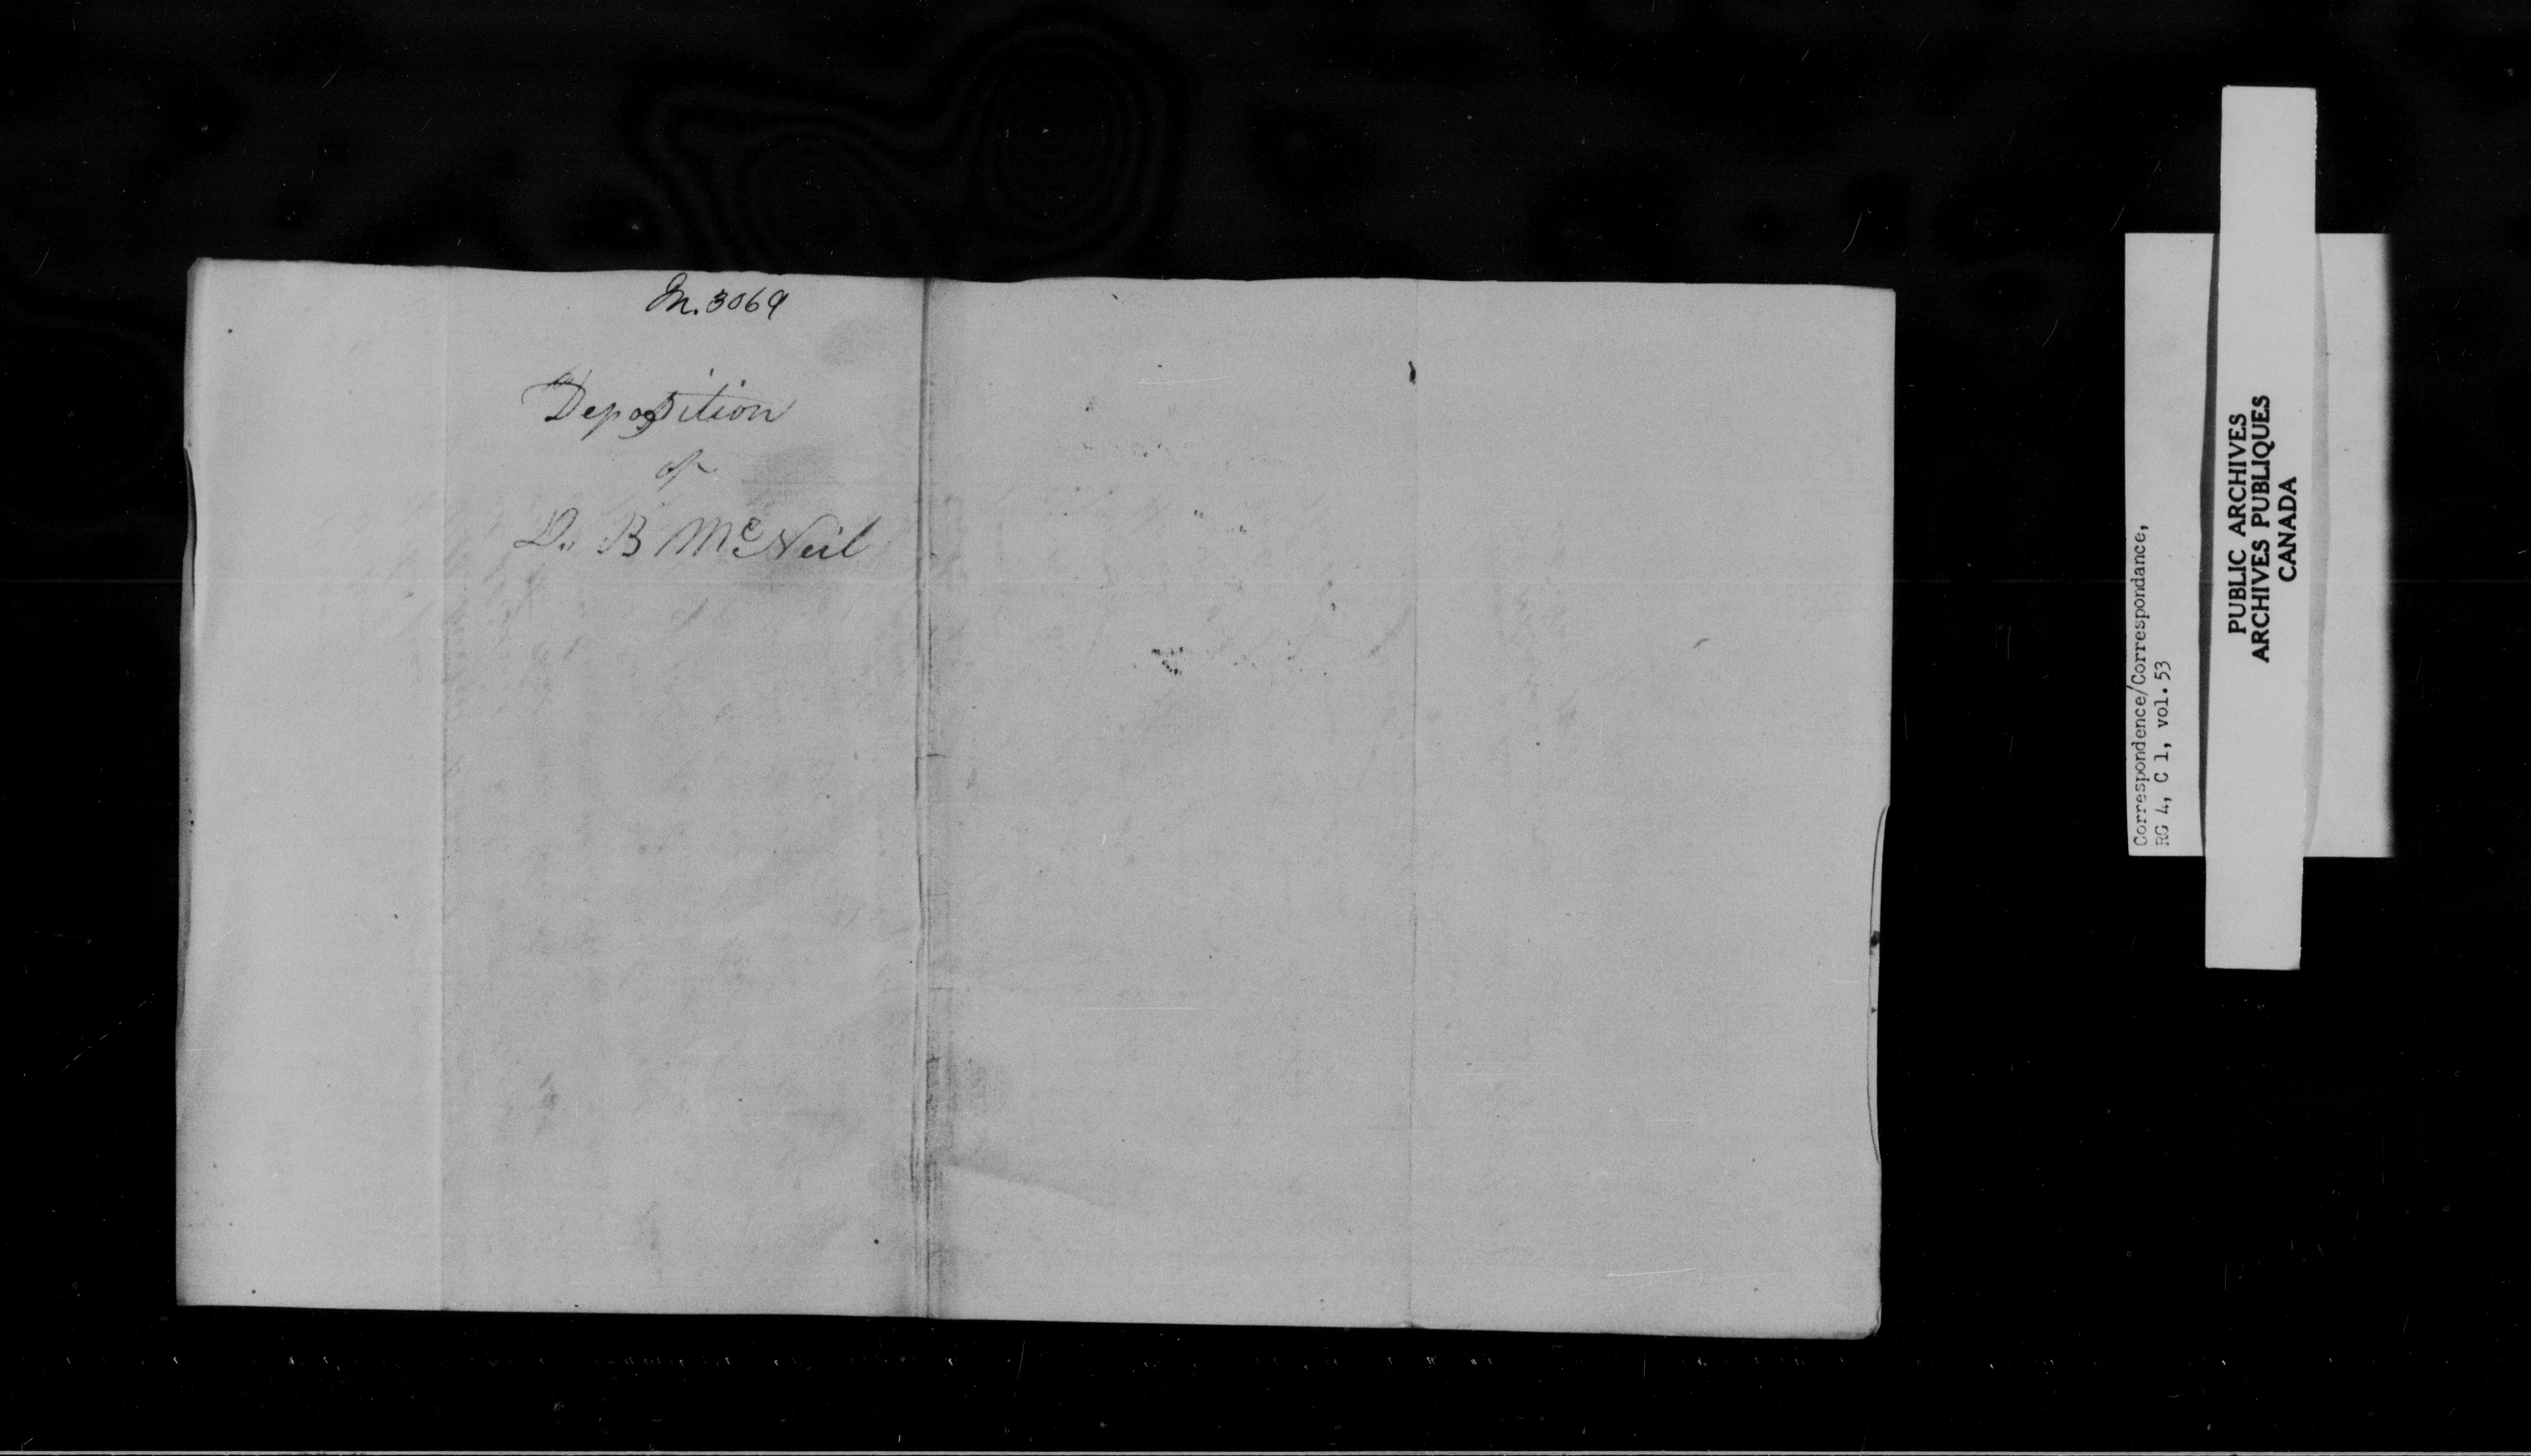 M. 3069
Deposition
of
D. B McNeil
Correspondence/Correspondance,
RG 4, C 1, vol. 53
PUBLIC ARCHIVES
ARCHIVES PUBLIQUES
CANADA